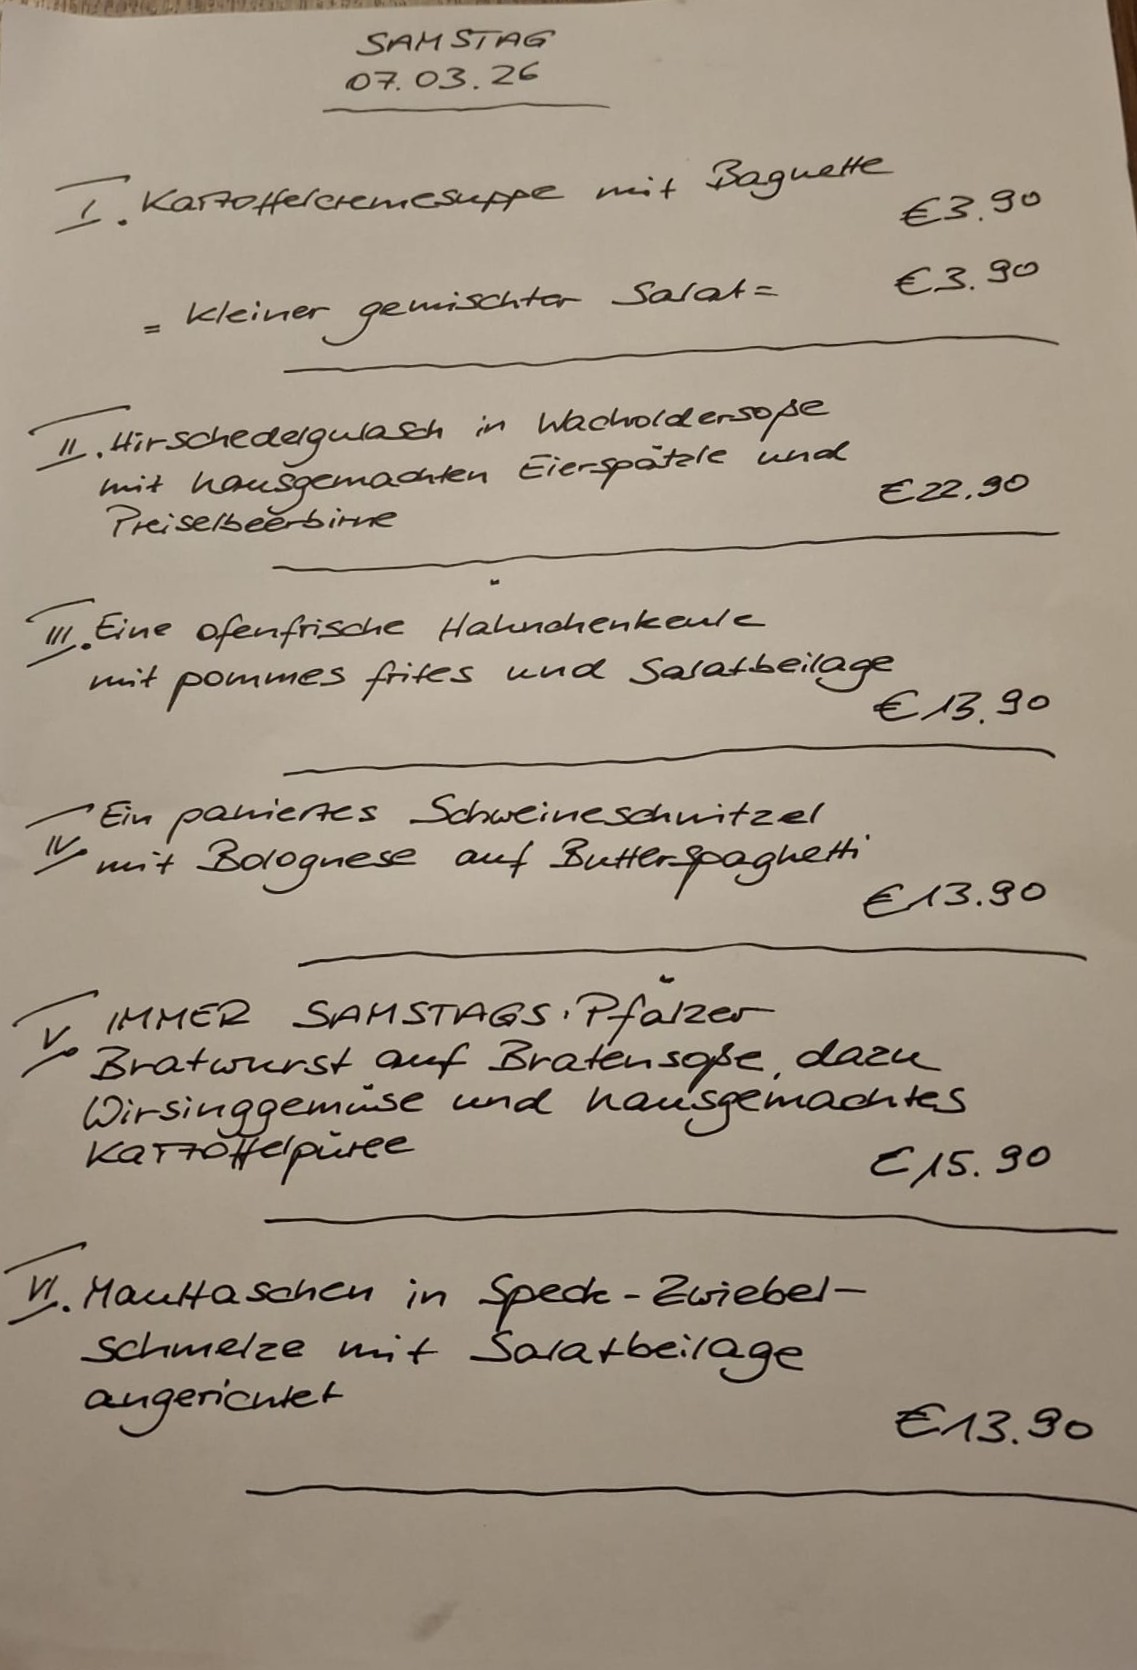 SAMSTAG
07.03.26
I. Kartoffelcremesuppe mit Baguette
€3.90
= kleiner gemischter Salat =
€3.90
II. Hirschedelgulasch in Wacholdersoße
mit hausgemachten Eierspätzle und
Preiselbeerbirne
€22.90
III. Eine ofenfrische Hähnchenkeule
mit pommes frites und Salatbeilage
€13.90
IV. Ein paniertes Schweineschnitzel
mit Bolognese auf Butterspaghetti
€13.90
V. IMMER SAMSTAGS: Pfälzer
Bratwurst auf Bratensoße, dazu
Wirsinggemüse und hausgemachtes
Kartoffelpüree
€15.90
VI. Maultaschen in Speck-Zwiebel-
schmelze mit Salatbeilage
angerichtet
€13.90